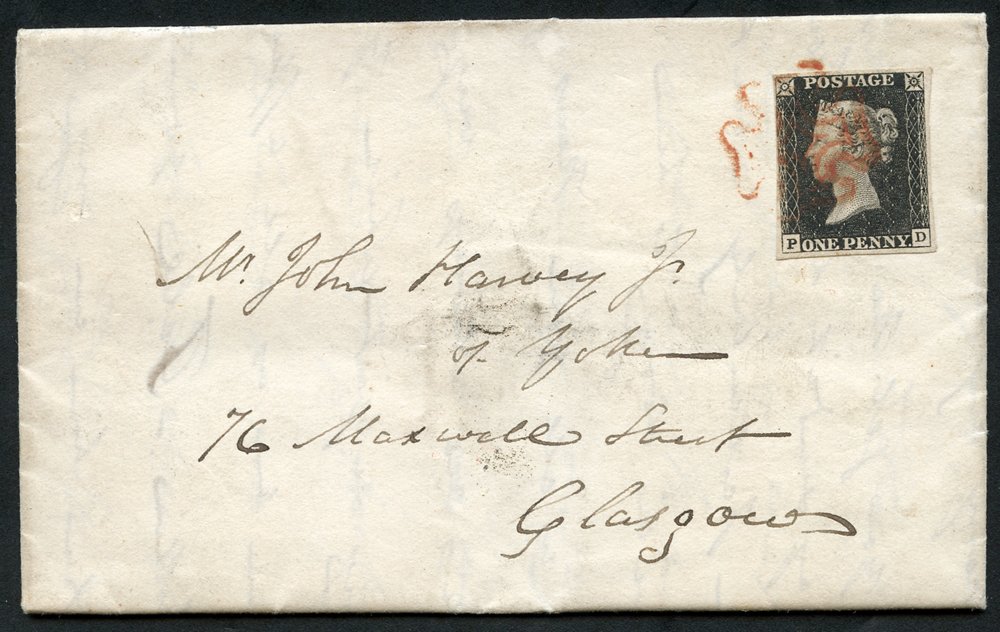 POSTAGE
P ONE PENNY D
Mr. John Harvey Jr.
of Yoker
76 Maxwell Street
Glasgow